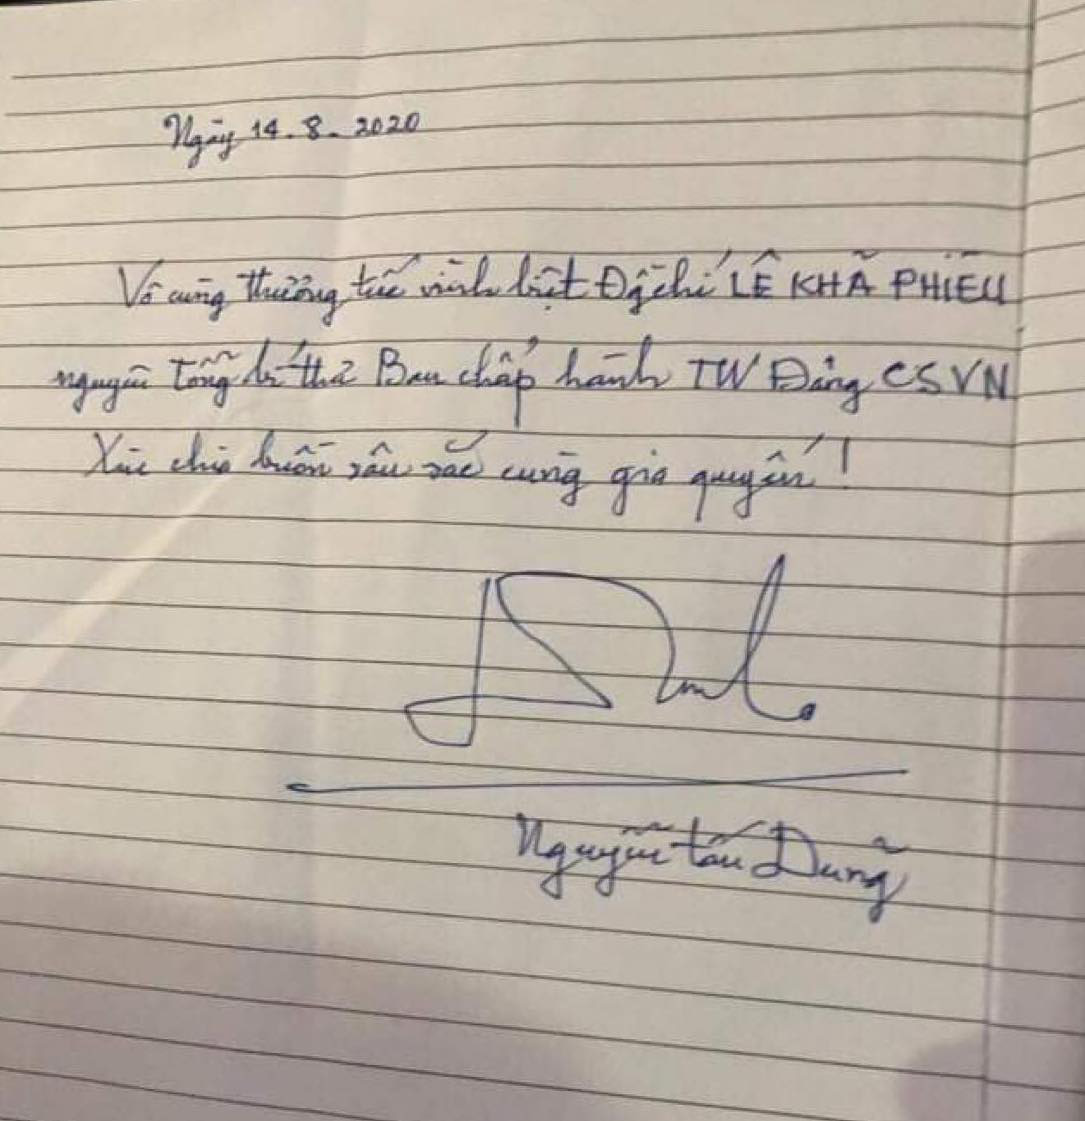 Ngày 14.8.2020
Vô cùng thương tiếc vĩnh biệt Đ/chí LÊ KHẢ PHIÊU
nguyên Tổng bí thư Ban chấp hành TW Đảng CSVN
Xin chia buồn sâu sắc cùng gia quyến!
Nguyễn tấn Dũng